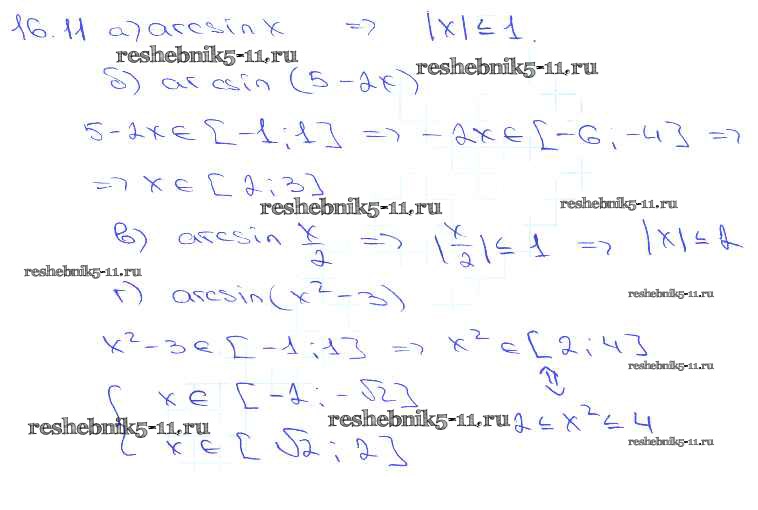 16.11 а) arcsin x => |x| ≤ 1.
reshebnik5-11.ru
reshebnik5-11.ru
б) arcsin (5-2x)
5-2x ∈ [-1; 1] => -2x ∈ [-6; -4] =>
=> x ∈ [2; 3]
reshebnik5-11.ru
reshebnik5-11.ru
в) arcsin x/2 => |x/2| ≤ 1 => |x| ≤ 2
reshebnik5-11.ru
г) arcsin(x² - 3)
reshebnik5-11.ru
x² - 3 ∈ [-1; 1] => x² ∈ [2; 4]
reshebnik5-11.ru
⇕
{ x ∈ [-2; -√2]
reshebnik5-11.ru
reshebnik5-11.ru
2 ≤ x² ≤ 4
x ∈ [√2; 2]
reshebnik5-11.ru